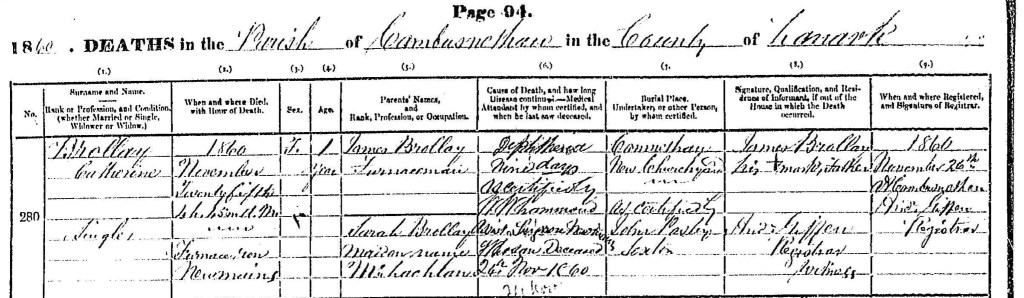 Page 94.
1860. DEATHS in the Parish of Cambusnethan in the County of Lanark
(1.) (2.) (3.) (4.) (5.) (6.) (7.) (8.) (9.)
No.
Surname and Name.
Rank or Profession, and Condition,
(whether Married or Single,
Widower or Widow.)
When and where Died,
with Hour of Death.
Sex.
Age.
Parents' Names,
and
Rank, Profession, or Occupation.
Cause of Death, and how long
Disease continued.—Medical
Attendant by whom certified, and
when he last saw deceased.
Burial Place.
Undertaker, or other Person,
by whom certified.
Signature, Qualification, and Resi-
dence of Informant, if out of the
House in which the Death
occurred.
When and where Registered,
and Signature of Registrar.
280
Brollay
Catherine
Single
1860
November
Twenty fifth
5 h.
Furnace row
Newmains
F.
1
Year
James Brollay
Furnaceman
Sarah Brollay
maiden name
McLachlan
Nine days
As certified by
Surgeon
Deceased
26th Nov 1860
New Churchyard
As certified by
John
Sexton
James Brollay
his x mark, Father
Registrar
Witness
1860
November 26th
At Cambusnethan
Registrar